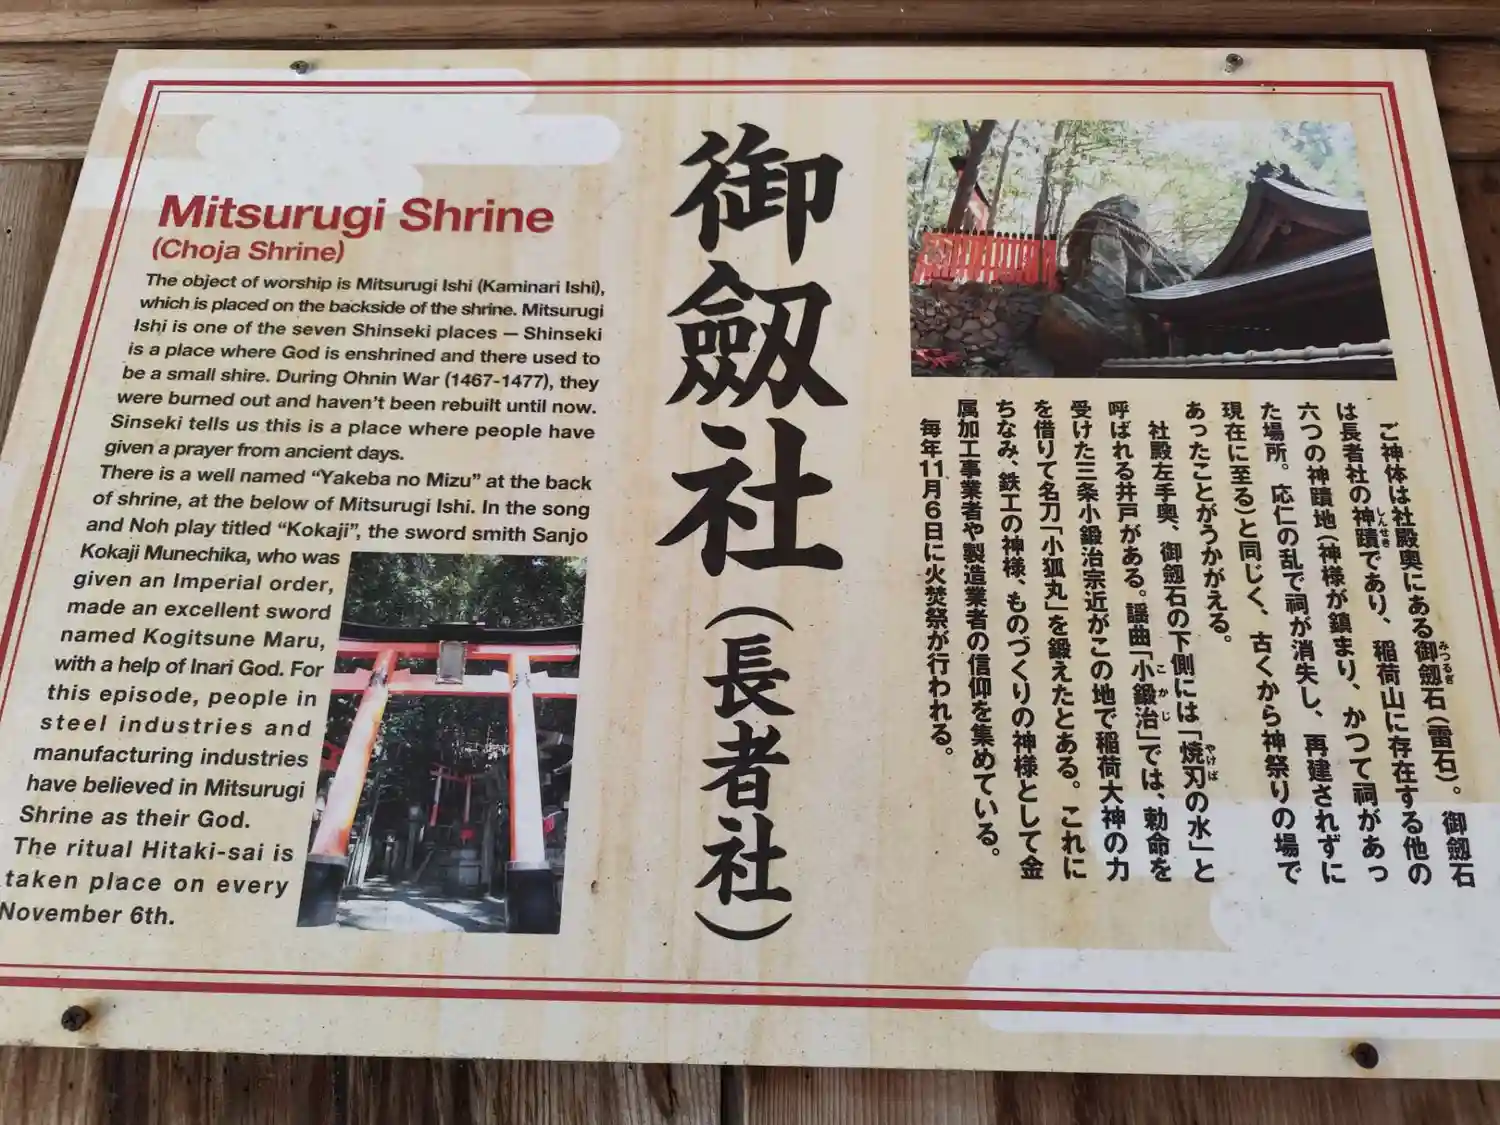 Mitsurugi Shrine
(Choja Shrine)
The object of worship is Mitsurugi Ishi (Kaminari Ishi),
which is placed on the backside of the shrine. Mitsurugi
Ishi is one of the seven Shinseki places — Shinseki
is a place where God is enshrined and there used to
be a small shire. During Ohnin War (1467-1477), they
were burned out and haven't been rebuilt until now.
Sinseki tells us this is a place where people have
given a prayer from ancient days.
There is a well named “Yakeba no Mizu” at the back
of shrine, at the below of Mitsurugi Ishi. In the song
and Noh play titled “Kokaji”, the sword smith Sanjo
Kokaji Munechika, who was
given an Imperial order,
made an excellent sword
named Kogitsune Maru,
with a help of Inari God. For
this episode, people in
steel industries and
manufacturing industries
have believed in Mitsurugi
Shrine as their God.
The ritual Hitaki-sai is
taken place on every
November 6th.
御劔社（長者社）
ご神体は社殿奥にある御劔石（雷石）。御劔石
みつるぎ
は長者社の神蹟であり、稲荷山に存在する他の
しんせき
六つの神蹟地（神様が鎮まり、かつて祠があっ
た場所。応仁の乱で祠が消失し、再建されずに
現在に至る）と同じく、古くから神祭りの場で
あったことがうかがえる。
社殿左手奥、御劔石の下側には「焼刃の水」と
やけば
呼ばれる井戸がある。謡曲「小鍛治」では、勅命を
こかじ
受けた三条小鍛治宗近がこの地で稲荷大神の力
を借りて名刀「小狐丸」を鍛えたとある。これに
ちなみ、鉄工の神様、ものづくりの神様として金
属加工事業者や製造業者の信仰を集めている。
毎年11月6日に火焚祭が行われる。